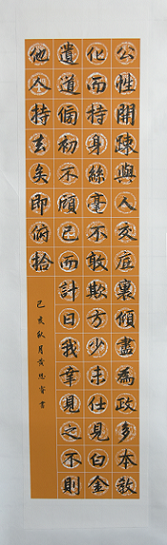 公性開疎與人交底裏傾盡為政多本教
化而持身絲毫不敢欺方少未仕見白金
遺道側初不顧已而計曰我幸見之不則
他人持去矣即俯拾
己亥秋月黄書